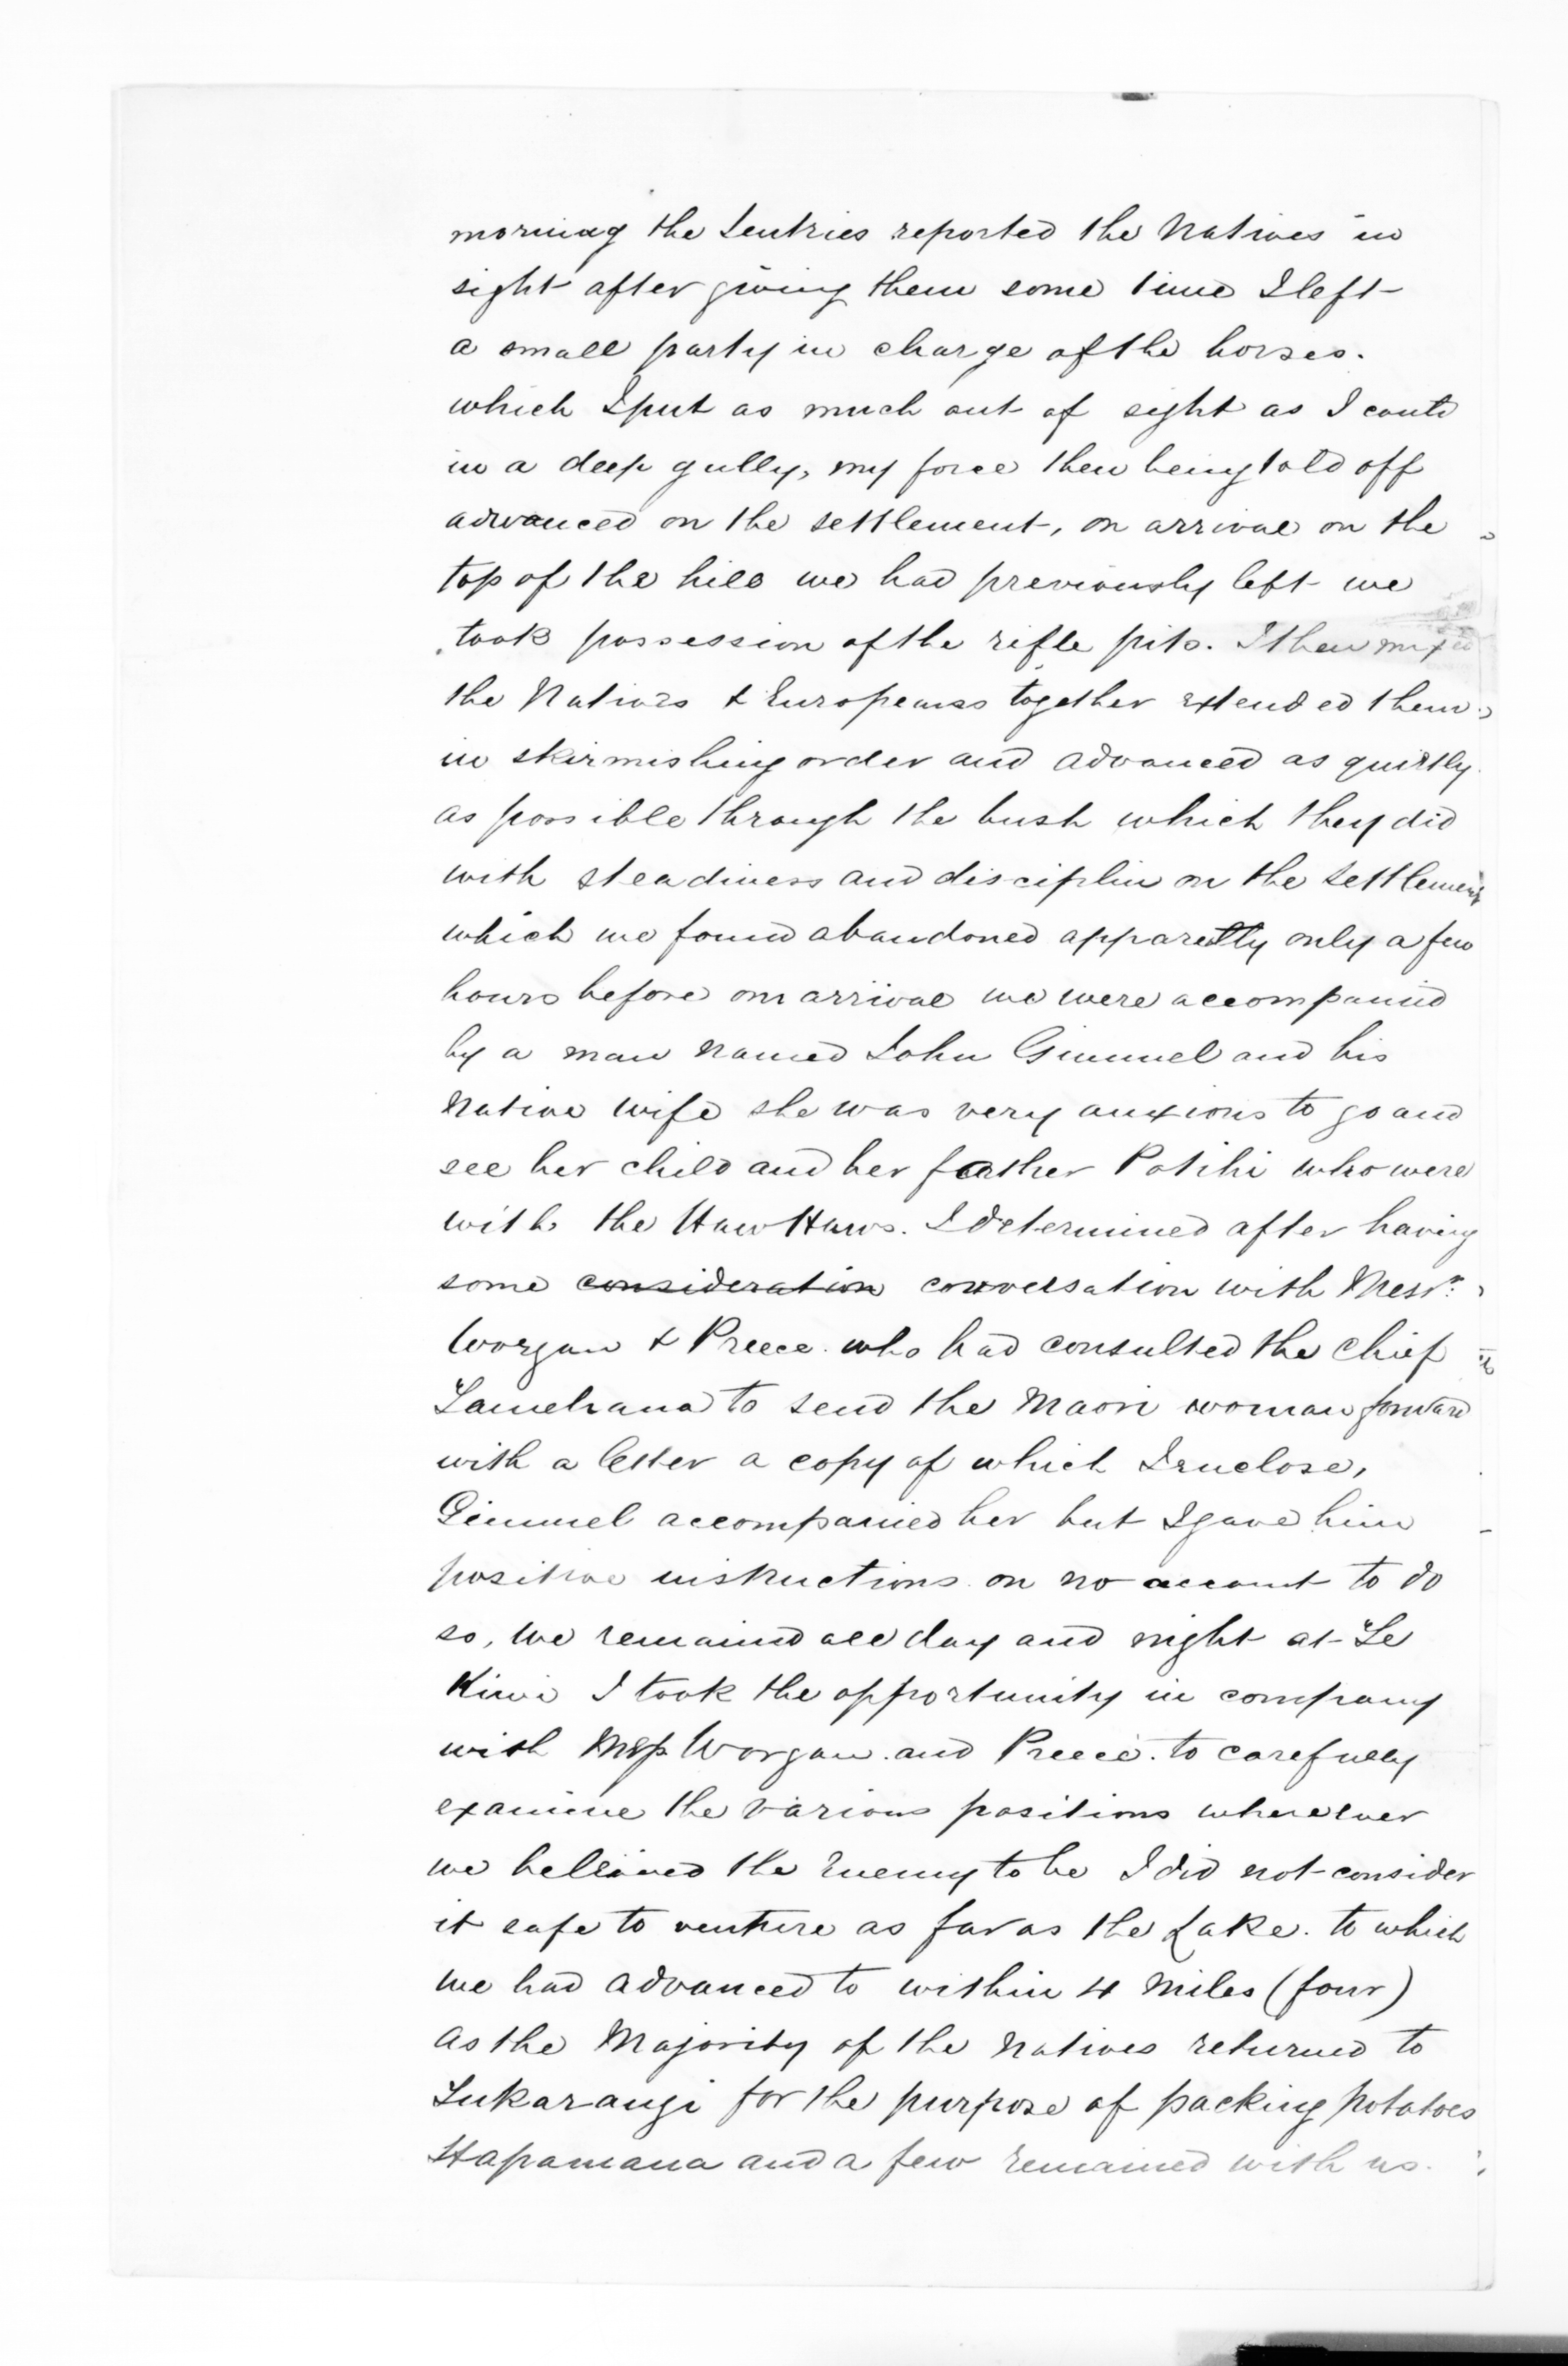 morning the Sentries reported the Natives in
sight after giving them some time I left
a small party in charge of the horses.
which I put as much out of sight as I could
in a deep gully, my force then being told off
advanced on the settlement, on arrival on the
top of the hill we had previously left we
took possession of the rifle pits. I then mixed
the Natives & Europeans together extended them
in skirmishing order and advanced as quietly
as possible through the bush which they did
with steadiness and disciplin on the settlement
which we found abandoned apparetly only a few
hours before our arrival we were accompanied
by a man named John Gimmel and his
Native wife she was very anxious to go and
see her child and her father Potihi who were
with the Haw Haws. I determined after having
some consideration conversation with Messrs.
Worgan & Preece. who had consulted the chief
Tamehana to send the Maori woman forward
with a letter a copy of which I enclose,
Gimmel accompanied her but I gave him
positive instructions on no account to do
so, we remained all day and night at Te
Kiwi I took the opportunity in company
with Worgan and Preece. to carefully
examine the various positions wherever
we believed the Enemy to be I did not consider
it safe to venture as far as the Lake. to which
we had advanced to within 4 Miles (four)
as the Majority of the Natives returned to
Tukarangi for the purpose of packing potatoes
Hapamana and a few remained with us.